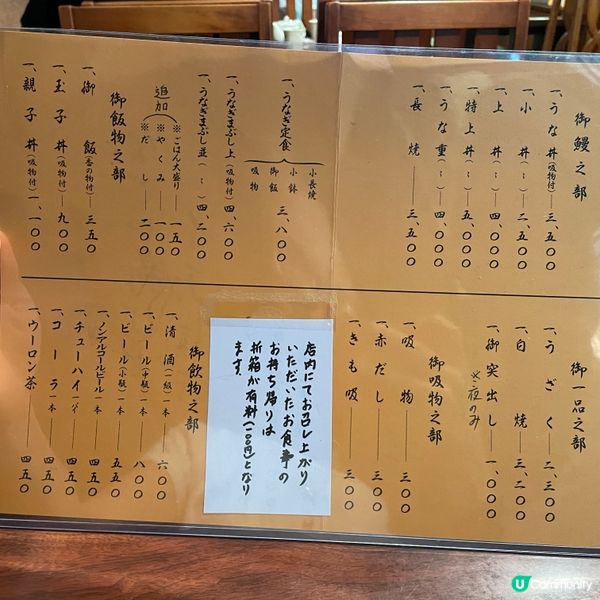 御鰻之部
一、うな丼(吸物付)—三、五〇〇
一、小 丼(〃)—二、五〇〇
一、上 丼(〃)—四、〇〇〇
一、特上丼(〃)—五、〇〇〇
一、うな重(〃)—四、〇〇〇
一、長 焼—三、五〇〇
一、うなぎ定食
小長焼
小鉢
御飯
吸物
三、八〇〇
一、うなぎまぶし上(吸物付)四、六〇〇
一、うなぎまぶし並(〃)四、二〇〇
追加
※ごはん大盛り—一五〇
※やくみ—一〇〇
※だし—二〇〇
御飯物之部
一、御 飯(香の物付)三五〇
一、玉子丼(吸物付)—九〇〇
一、親子丼(吸物付)一、一〇〇
御一品之部
一、うざく—二、三〇〇
一、白 焼—三、二〇〇
一、御突出し—一、〇〇〇
※夜のみ
御吸物之部
一、吸 物—三〇〇
一、赤だし—三〇〇
一、きも吸—三〇〇
店内にてお召し上がり
いただいたお食事の
お持ち帰りは
折箱が有料(一〇〇円)となり
ます。
御飲物之部
一、清 酒(一級)一本—六〇〇
一、ビール(中瓶)一本—八〇〇
一、ビール(小瓶)一本—五五〇
一、ノンアルコールビール一本—四五〇
一、チューハイ一パイ—四五〇
一、コーラ一本—四五〇
一、ウーロン茶—四五〇
U Community